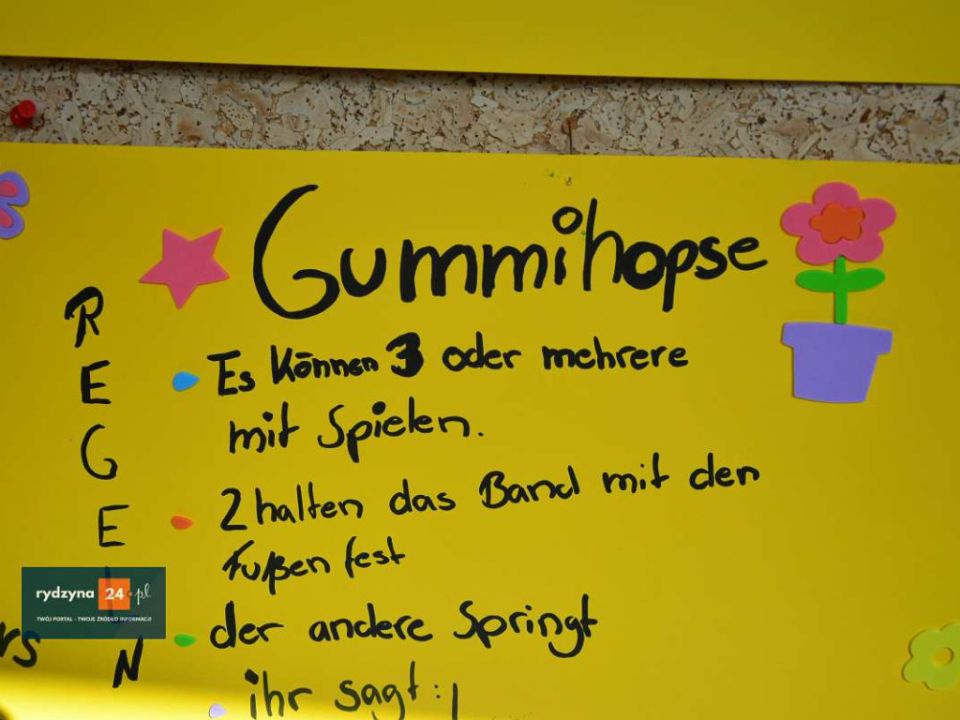 Gummihopse
R
E
G
E
L
N
Es können 3 oder mehrere
mit Spielen.
2 halten das Band mit den
Fußen fest
der andere Springt
ihr sagt:
rs
rydzyna 24.pl
TWÓJ PORTAL - TWOJE ŹRÓDŁO INFORMACJI